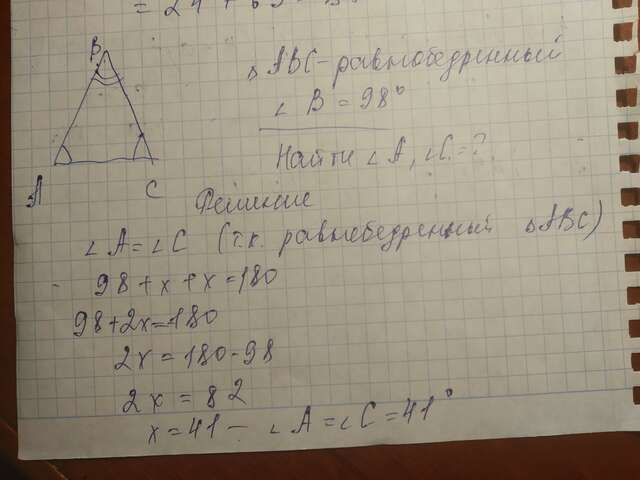 = 24 + 63
B
△ABC - равнобедренный
∠ B = 98°
Найти ∠A, ∠C = ?
A
C
Решение
∠ A = ∠ C (т.к. равнебедренный △ABC)
98 + x + x = 180
98 + 2x = 180
2x = 180 - 98
2x = 82
x = 41 — ∠ A = ∠ C = 41°